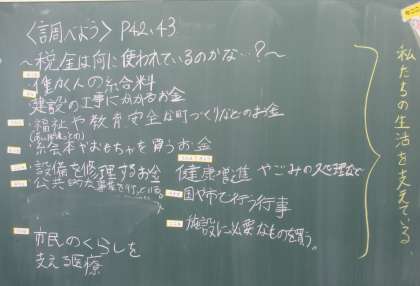 〈調べよう〉 P42、43
～税金は何に使われているのかな…？～
・働く人の給料
・建設の工事にかかるお金
・福祉や教育、安全な町づくりなどのお金
・絵本やおもちゃを買うお金
・設備を修理するお金
健康増進やごみの処理など
・公共的な事業を行っている
国や市で行う行事
施設に必要なものを買う。
市民のくらしを
支える医療
私たちの生活を支えている。